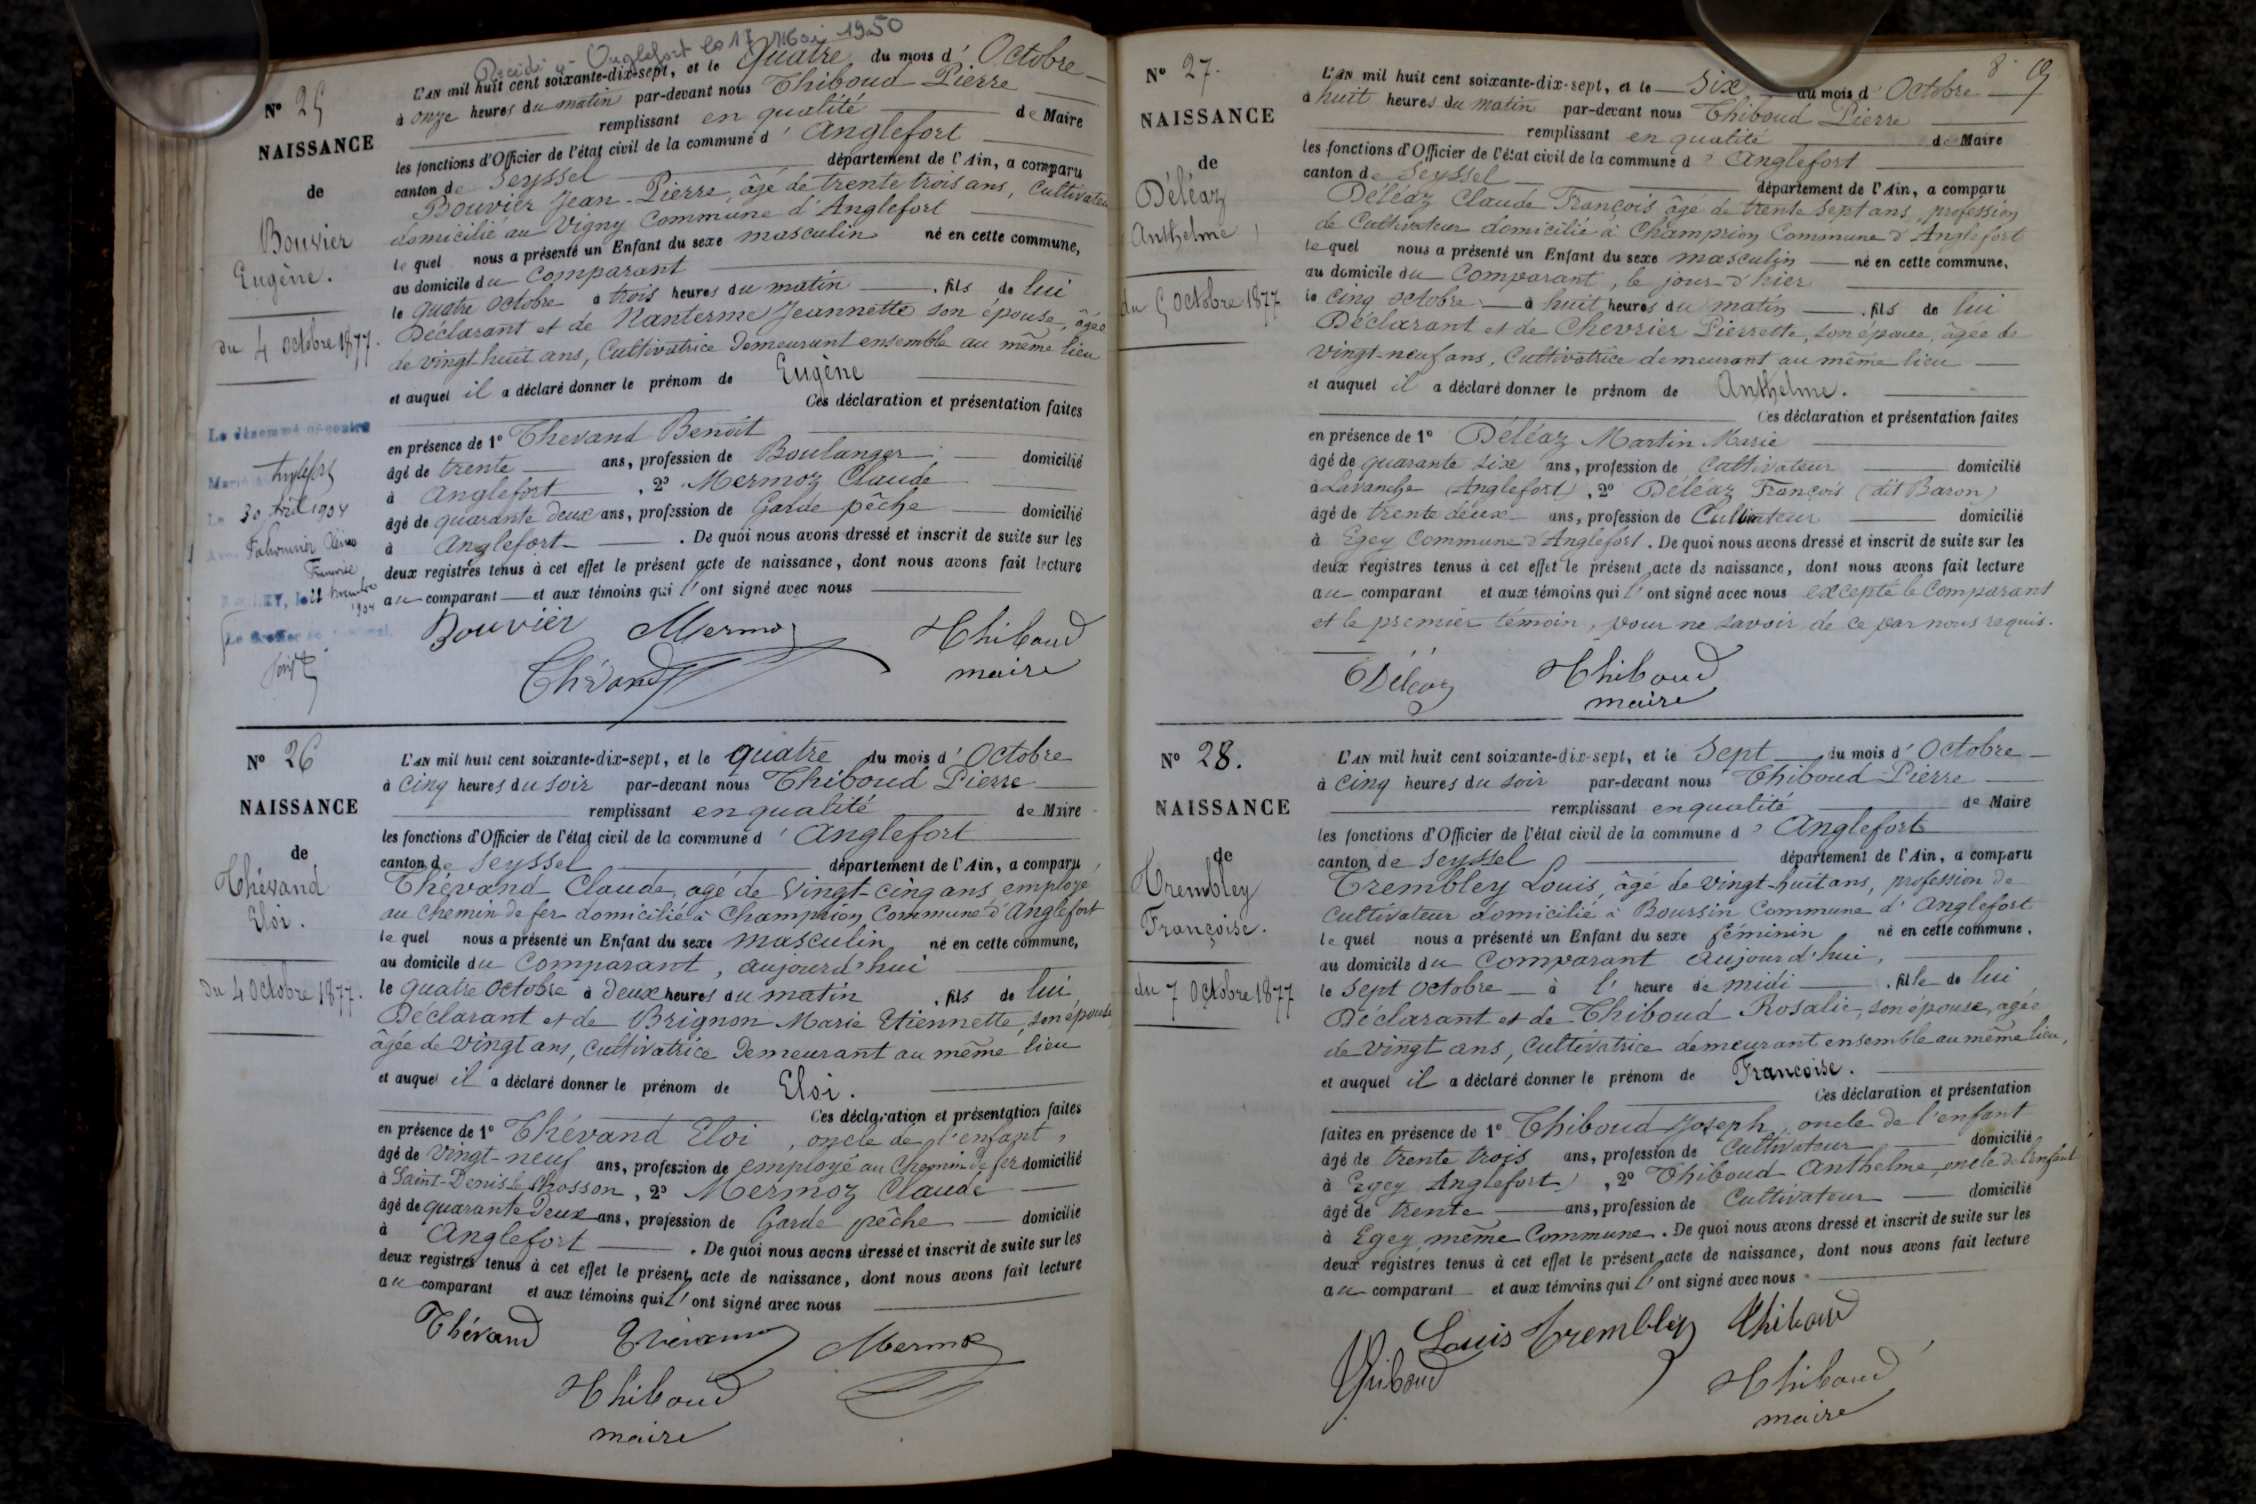 Décédé à Anglefort le 17 Mai 1950
N° 25
NAISSANCE
de
Bouvier
Eugène.
du 4 octobre 1877.
L'AN mil huit cent soixante-dix-sept, et le Quatre du mois d' Octobre
à onze heures du matin par-devant nous Thiboud Pierre
remplissant en qualité de Maire
les fonctions d'Officier de l'état civil de la commune d' Anglefort
canton de Seyssel département de l'Ain, a comparu
Bouvier Jean-Pierre, âgé de trente trois ans, Cultivateur
domicilié au Vigny Commune d'Anglefort
le quel nous a présenté un Enfant du sexe masculin né en cette commune,
au domicile du Comparant
le quatre octobre à trois heures du matin, fils de lui
Déclarant et de Nanterme Jeannette son épouse, âgée
de vingt huit ans, Cultivatrice demeurant ensemble au même lieu
et auquel il a déclaré donner le prénom de Eugène
Ces déclaration et présentation faites
en présence de 1° Thevand Benoit
âgé de trente ans, profession de Boulanger domicilié
à Anglefort, 2° Mermoz Claude
âgé de quarante deux ans, profession de Garde pêche domicilié
à Anglefort. De quoi nous avons dressé et inscrit de suite sur les
deux registres tenus à cet effet le présent acte de naissance, dont nous avons fait lecture
au comparant et aux témoins qui l'ont signé avec nous
Le dénommé ci-contre
Marié à Anglefort
Le 30 Avril 1904
Bouvier Mermoz Thiboud
Thévand maire
N° 26
NAISSANCE
de
Thévand
Eloi.
du 4 Octobre 1877.
L'AN mil huit cent soixante-dix-sept, et le quatre du mois d' Octobre
à cinq heures du soir par-devant nous Thiboud Pierre
remplissant en qualité de Maire
les fonctions d'Officier de l'état civil de la commune d' Anglefort
canton de Seyssel département de l'Ain, a comparu
Thévand Claude, agé de Vingt-cinq ans, employé
au chemin de fer domicilié à Champrion, Commune d'Anglefort
le quel nous a présenté un Enfant du sexe masculin né en cette commune,
au domicile du Comparant, aujourd'hui
le quatre Octobre à deux heures du matin, fils de lui
Déclarant et de Brignon Marie Etiennette, son épouse,
âgée de vingt ans, Cultivatrice demeurant au même lieu
et auquel il a déclaré donner le prénom de Eloi.
Ces déclaration et présentation faites
en présence de 1° Thévand Eloi, oncle de l'enfant,
âgé de vingt-neuf ans, profession de employé au Chemin de fer domicilié
à Saint-Denis le Chosson, 2° Mermoz Claude
âgé de quarante deux ans, profession de Garde pêche domicilié
à Anglefort. De quoi nous avons dressé et inscrit de suite sur les
deux registres tenus à cet effet le présent acte de naissance, dont nous avons fait lecture
au comparant et aux témoins qui l'ont signé avec nous
Thévand Thévand Mermoz
Thiboud
maire
8.
N° 27.
NAISSANCE
de
Déléaz
Anthelme
du 5 Octobre 1877
L'AN mil huit cent soixante-dix-sept, et le Six du mois d' Octobre
à huit heures du matin par-devant nous Thiboud Pierre
remplissant en qualité de Maire
les fonctions d'Officier de l'état civil de la commune d' Anglefort
canton de Seyssel département de l'Ain, a comparu
Déléaz Claude François âgé de trente sept ans, profession
de Cultivateur domicilié à Champrion Commune d'Anglefort
le quel nous a présenté un Enfant du sexe masculin né en cette commune,
au domicile du Comparant, le jour d'hier
le cinq octobre à huit heures du matin, fils de lui
Déclarant et de Chevrier Pierrette, son épouse, âgée de
vingt-neuf ans, Cultivatrice demeurant au même lieu
et auquel il a déclaré donner le prénom de Anthelme.
Ces déclaration et présentation faites
en présence de 1° Déléaz Martin Marie
âgé de quarante six ans, profession de Cultivateur domicilié
à Lavanche (Anglefort), 2° Déléaz François (dit Baron)
âgé de trente deux ans, profession de Cultivateur domicilié
à Egey Commune d'Anglefort. De quoi nous avons dressé et inscrit de suite sur les
deux registres tenus à cet effet le présent acte de naissance, dont nous avons fait lecture
au comparant et aux témoins qui l'ont signé avec nous excepté le Comparant
et le premier témoin, pour ne savoir de ce par nous requis.
Déléaz Thiboud
maire
N° 28.
NAISSANCE
de
Trembley
Françoise.
du 7 Octobre 1877
L'AN mil huit cent soixante-dix-sept, et le Sept du mois d' Octobre
à cinq heures du soir par-devant nous Thiboud Pierre
remplissant en qualité de Maire
les fonctions d'Officier de l'état civil de la commune d' Anglefort
canton de Seyssel département de l'Ain, a comparu
Trembley Louis, âgé de vingt-huit ans, profession de
Cultivateur domicilié à Boursin Commune d'Anglefort
le quel nous a présenté un Enfant du sexe féminin né en cette commune,
au domicile du Comparant aujourd'hui,
le sept octobre à l' heure de midi, fille de lui
Déclarant et de Thiboud Rosalie, son épouse, agée
de vingt ans, Cultivatrice demeurant ensemble au même lieu,
et auquel il a déclaré donner le prénom de Françoise.
Ces déclaration et présentation
faites en présence de 1° Thiboud Joseph, oncle de l'enfant
âgé de trente trois ans, profession de Cultivateur domicilié
à Egey Anglefort), 2° Thiboud Anthelme, oncle de l'enfant
âgé de trente ans, profession de Cultivateur domicilié
à Egey même Commune. De quoi nous avons dressé et inscrit de suite sur les
deux registres tenus à cet effet le présent acte de naissance, dont nous avons fait lecture
au comparant et aux témoins qui l'ont signé avec nous.
Louis Trembley Thiboud
Thiboud Thiboud
maire